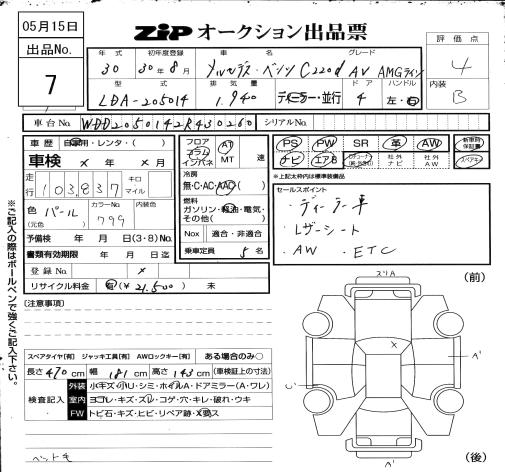 05月15日
ZiP オークション出品票
出品No.
7
年式 初年度登録 車名 グレード
30 30年8月 メルセデス・ベンツ C220d AV AMGライン
型式 排気量 ドア ハンドル
LDA-205014 1.940 ディーラー・並行 4 左・右
評価点
4
内装
B
車台No. WDD2050142R430260 シリアルNo.
車歴 自家用・レンタ・( )
車検 × 年 × 月
走行 103,837 キロ マイル
色 パール (元色) カラーNo. 799 内装色
予備検 年 月 日(3・8)No.
書類有効期限 年 月 日迄
登録No. ×
リサイクル料金 有(¥ 21,500 ) 未
フロア コラム インパネ AT MT 速
冷房
無・C・AC・AAC
燃料
ガソリン・軽油・電気・その他( )
Nox 適合・非適合
乗車定員 5 名
PS PW SR 革 AW 新車時保証書
ナビ エアB 社外ナビ 社外AW スペアキー
※上記太枠内は標準装備品
セールスポイント
・ディーラー車
・レザーシート
・AW ・ETC
※ご記入の際はボールペンで強くご記入下さい。
(注意事項)
スペアタイヤ[有] ジャッキ工具[有] AWロックキー[有] ある場合のみ○
長さ 470 cm 幅 181 cm 高さ 143 cm (車検証上の寸法)
検査記入
外装 小キズ・小U・シミ・ホイルA・ドアミラー(A・ワレ)
室内 ヨゴレ・キズ・スレ・コゲ・穴・キレ・破れ・ウキ
FW トビ石・キズ・ヒビ・リペア跡・X要ス
ペット毛
スリA
(前)
×
A'
C'
A'
(後)